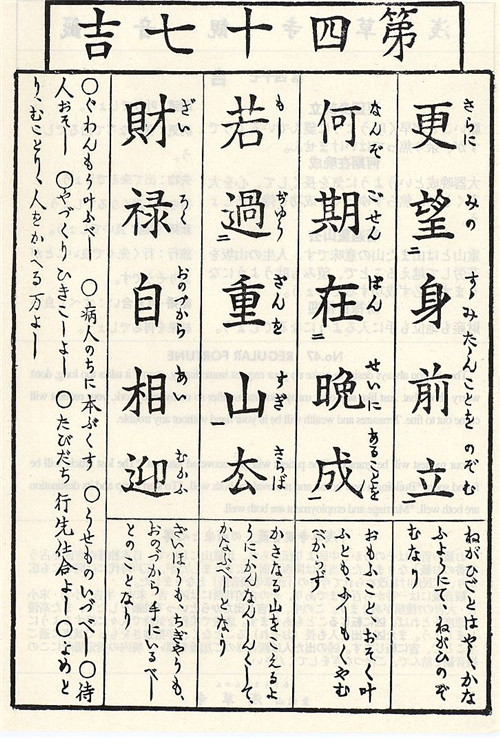 第四十七吉
更望二身前立一
さらに みの すゝみたゝんことを のぞむ
ねがひごとはやくかな
ふようにて、ねがひのぞ
むなり
何期在二晩成一
なんぞ ごせん ばん せいに あることを
おもふことのおそく叶
ふとも
くやむ
べからず
若過二重山一去
もし ざんを すぎ さらば
かさなる山をこえるよ
うにかんなんしんくして、
かなふべしとなり
財禄自相迎
ざい ろく おのづから あい むかふ
ざいほうもちぎやうも、
おのづから手にいるべし
とのことなり
〇ぐわんもう叶ふべし 〇病人のちに本ぷくす 〇うせものいづべし 〇待
人おそし 〇やづくりひきこしよし 〇たびだち行先仕合よし 〇よめと
り、むことり、人をかゝへる万よし